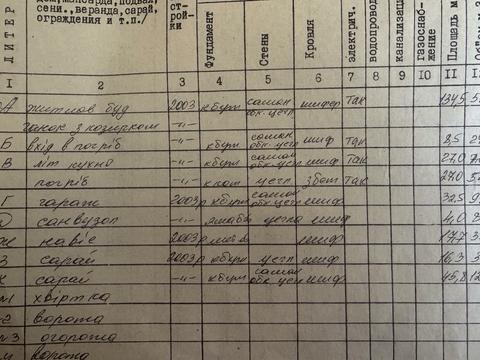 ЛИТЕР
сени., веранда, сарай,
ограждения и т.п./
стройки
Фундамент
Стены
Кровля
электрич.
водопровод
канализац
газоснабжение
Площадь м
I 2 3 4 5 6 7 8 9 10 11
А житлов буд 2003 кбут саман обк. цегл шифер так 134,5
ганок з козирком -"-
Б вхід в погріб -"- кбут саман обк. цегл шиф так 8,5
В літ кухню -"- кбут саман обк. цегл шиф так 27,0
погріб -"- цегл збет так 27,0
Г гараж 2003 кбут саман обк. цегл шиф 32,5
сан вузол -"- цегла шиф 4,0
навіс 2003р шиф 17,7
З сарай 2003р кбут цегл шиф 16,3
сарай -"- кбут саман обк. цегл шиф 45,8
№1 хвіртка
2 ворота
№3 огорожа
ворота